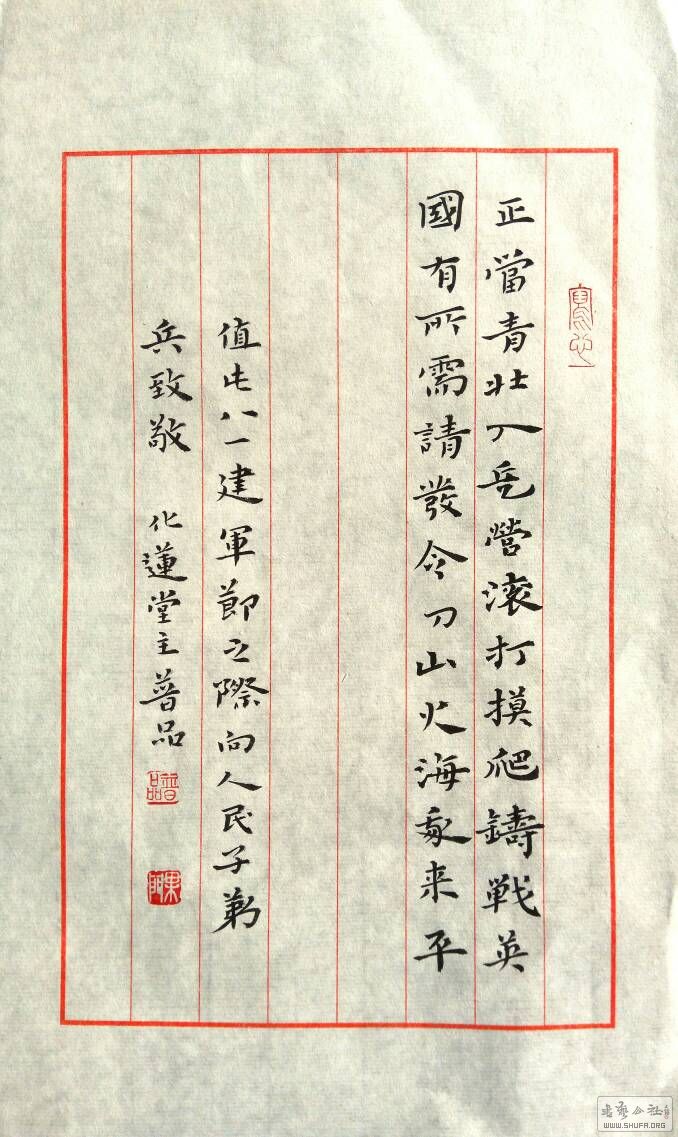 正當青壯入兵營滾打摸爬鑄戰英
國有所需請發令刀山火海我来平
值此八一建軍節之際向人民子弟
兵致敬 化蓮堂主普品
寫心
普品
書藝公社
WWW.SHUFA.ORG